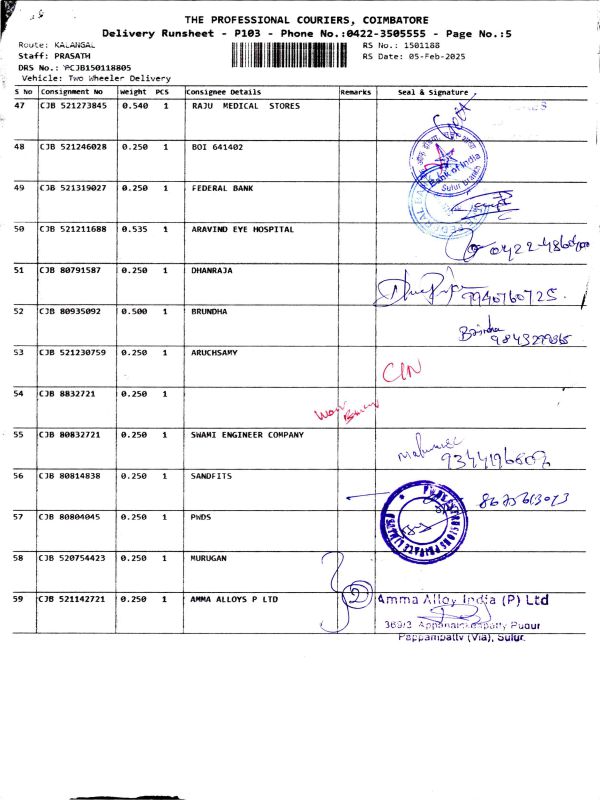 THE PROFESSIONAL COURIERS, COIMBATORE
Delivery Runsheet - P103 - Phone No.:0422-3505555 - Page No.:5
Route: KALANGAL
RS No.: 1501188
Staff: PRASATH
RS Date: 05-Feb-2025
DRS No.: PCJB150118805
Vehicle: Two Wheeler Delivery
S No Consignment No Weight PCS Consignee Details Remarks Seal & Signature
47 CJB 521273845 0.540 1 RAJU MEDICAL STORES
48 CJB 521246028 0.250 1 BOI 641402
Bank of India
Sulur Branch
49 CJB 521319027 0.250 1 FEDERAL BANK
50 CJB 521211688 0.535 1 ARAVIND EYE HOSPITAL
51 CJB 80791587 0.250 1 DHANRAJA
9940760725
52 CJB 80935092 0.500 1 BRUNDHA
53 CJB 521230759 0.250 1 ARUCHSAMY
CIN
54 CJB 8832721 0.250 1
55 CJB 80832721 0.250 1 SWAMI ENGINEER COMPANY
56 CJB 80814838 0.250 1 SANDFITS
57 CJB 80804045 0.250 1 PWDS
58 CJB 520754423 0.250 1 MURUGAN
59 CJB 521142721 0.250 1 AMMA ALLOYS P LTD
2
Amma Alloy India (P) Ltd
Pappampatty (Via), Sulur.